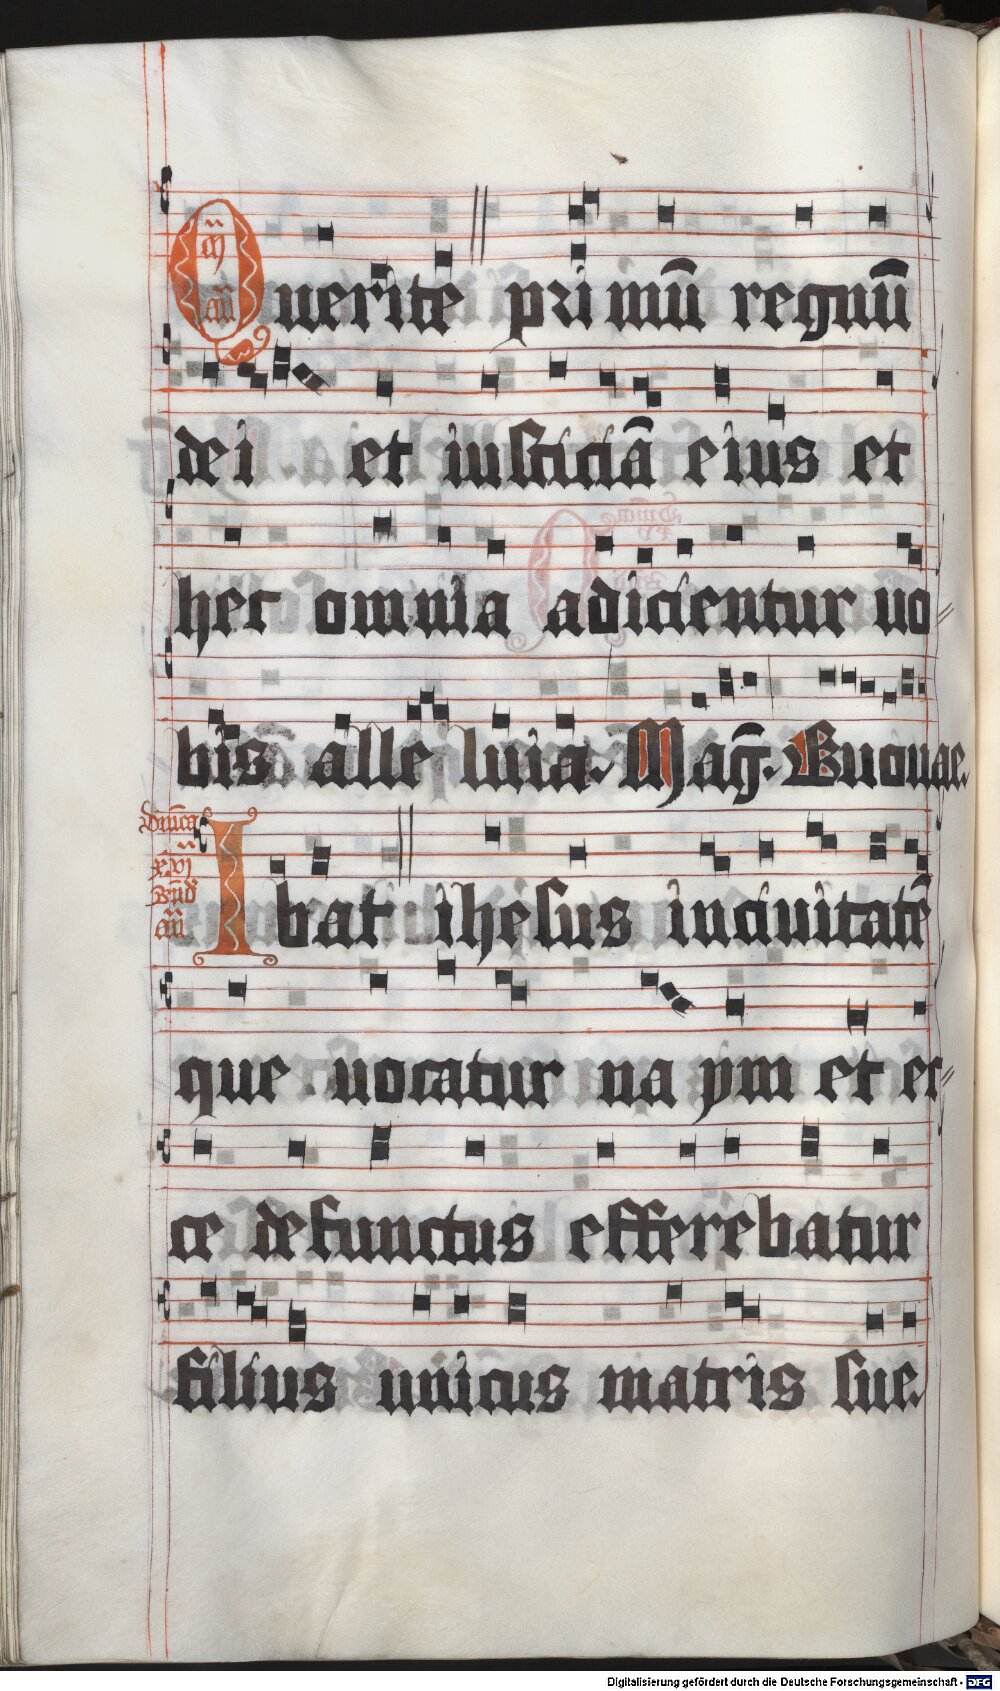 Querite primū regnū
dei et iusticiā eius et
hec omnia adicientur uo
bis alleluia. Mag̅. Euouae.
dn̅ica
xvi
an̅
Ibat ihesus in ciuitatē
que uocatur naym et ec
ce defunctus efferebatur
filius unicus matris sue
Digitalisierung gefördert durch die Deutsche Forschungsgemeinschaft - DFG